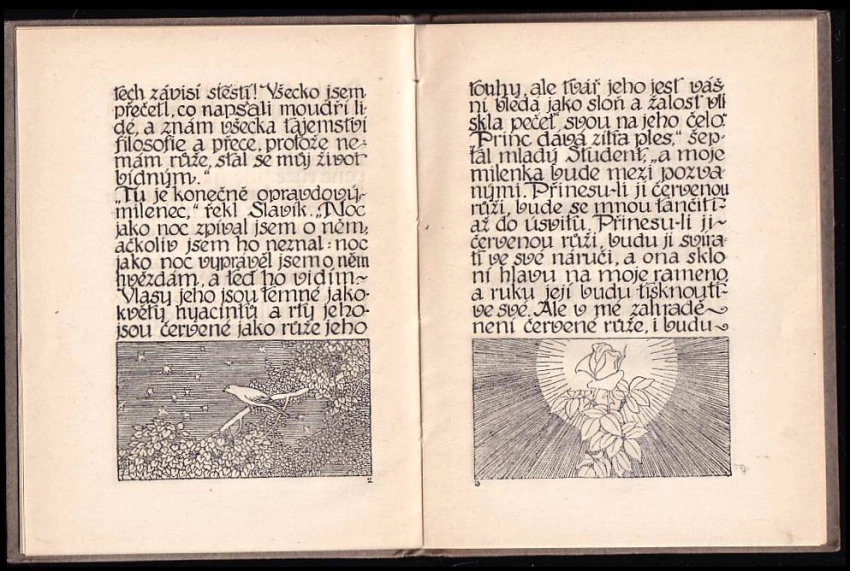 těch závisí štěstí! Všecko jsem
přečetl, co napsali moudří li-
dé, a znám všecka tajemství
filosofie a přece, protože ne-
mám růže, stal se můj život
bídným."
„Tu je konečně opravdový
milenec," řekl Slavík. „Noc
jako noc zpíval jsem o něm,
ačkoliv jsem ho neznal: noc
jako noc vyprávěl jsem o něm
hvězdám, a teď ho vidím~
Vlasy jeho jsou temné jako-
květy hyacintu a rty jeho-
jsou červené jako růže jeho
2
touhy, ale tvář jeho jest váš-
ní bledá jako sloň a žalost vti
skla pečeť svou na jeho čelo."
„Princ dává zítra ples," šep-
tal mladý Student, „a moje
milenka bude mezi pozva-
nými. Přinesu-li jí červenou
růži, bude se mnou tančiti-
až do úsvitu. Přinesu-li jí-
červenou růži, budu ji svíra-
ti ve své náruči, a ona sklo
ní hlavu na moje rameno
a ruku její budu tisknouti-
ve své. Ale v mé zahradě~
není červené růže, i budu~